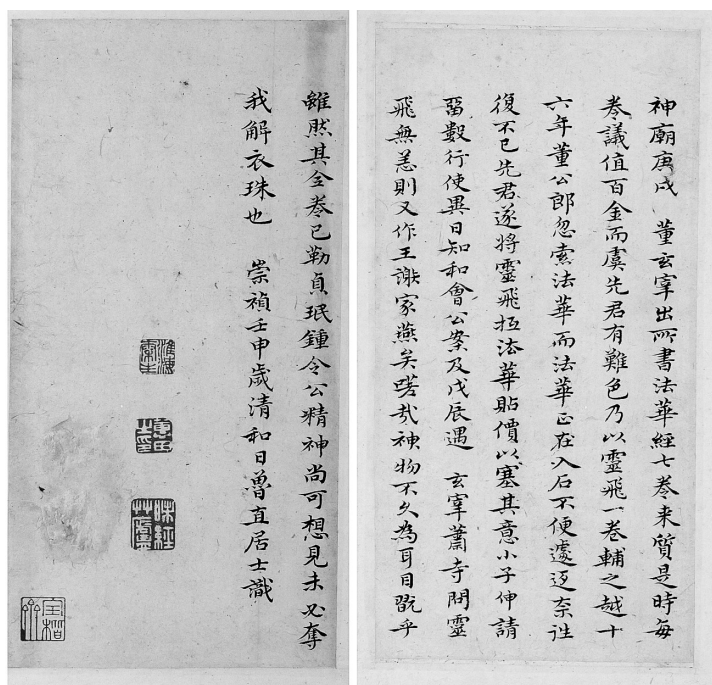 神廟庚戌　董玄宰出所書法華經七卷来質是時每
卷議值百金而虞先君有難色乃以靈飛一卷輔之越十
六年董公郎忽索法華而法華正在入石不便遽返奈往
復不已先君遂將靈飛抵法華貼價以塞其意小子伸請
留數行使異日知和會公案及戊辰遇　玄宰蕭寺問靈
飛無恙則又作王謝家燕矣嗟哉神物不久為耳目翫乎
雖然其全卷已勒貞珉鍾令公精神尚可想見未必奪
我解衣珠也　崇禎壬申歲清和日魯直居士識